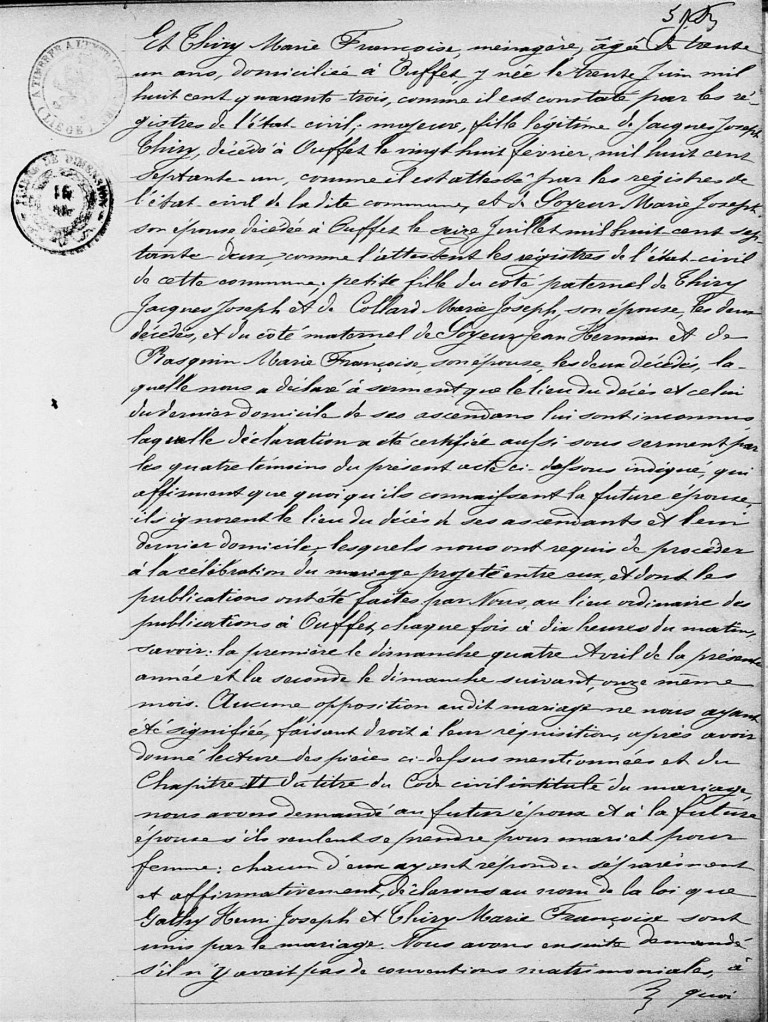 Et Thiry Marie Françoise, ménagère, âgée de trente
un ans, domiciliée à Ouffet y née le trente Juin mil
huit cent quarante-trois, comme il est constaté par les ré-
gistres de l'état-civil; majeure, fille légitime de Jacques Joseph
Thiry, décédé à Ouffet le vingt huit février, mil huit cent
septante-un, comme il est attesté par les registres de
l'état-civil de la dite commune, et de Goyeur Marie Joseph
son épouse décédée à Ouffet le seize Juillet mil huit cent sep-
tante deux, comme l'attestent les régistres de l'état-civil
de cette commune; petite fille du coté paternel de Thiry
Jacques Joseph et de Collard Marie Joseph, son épouse, les deux
décédés, et du côté maternel de Goyeur Jean Herman et de
Rasquin Marie Françoise son épouse, les deux décédés, la-
quelle nous a déclaré à serment que le lieu du décès et celui
du dernier domicile de ses ascendans lui sont inconnus
laquelle déclaration a été certifiée aussi sous serment par
les quatre témoins du présent acte ci-dessous indiqué, qui
affirment que quoi qu'ils connaissent la future épouse,
ils ignorent le lieu du décès de ses ascendants et leur
dernier domicile, lesquels nous ont requis de procéder
à la célébration du mariage projeté entre eux, et dont les
publications ont été faites par Nous, au lieu ordinaire des
publications à Ouffet, chaque fois à dix heures du matin,
savoir: la première le dimanche quatre Avril de la présente
année et la seconde le dimanche suivant, onze même
mois. Aucune opposition audit mariage ne nous ayant
été signifiée, faisant droit à leur réquisition, après avoir
donné lecture des pièces ci-dessus mentionnées et du
Chapitre VI du titre du Code civil intitulé du mariage,
nous avons demandé au futur époux et à la future
épouse s'ils veulent se prendre pour mari et pour
femme: chacun d'eux ayant répondu séparément
et affirmativement, déclarons au nom de la loi que
Gathy Henri Joseph et Thiry Marie Françoise sont
unis par le mariage. Nous avons ensuite demandé
s'il n'y avait pas de conventions matrimoniales, à
quoi